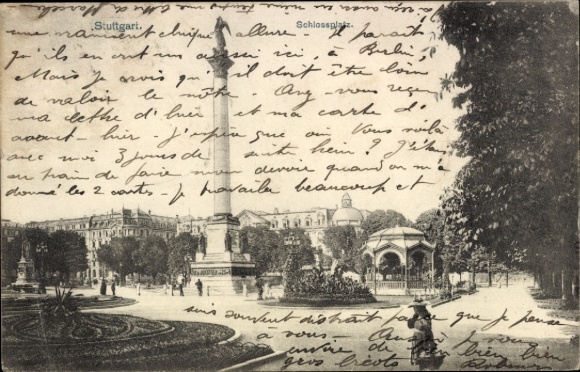 Stuttgart.
Schlossplatz.
une vraiment chique allure. Il paraît
qu'ils en ont un aussi ici, à Berlin,
Mais je crois qu'il doit être loin
de valoir le nôtre. Avez-vous reçu
ma lettre d'hier et ma carte d'
avant-hier. J'espère que oui. Vous voilà
avec moi 3 jours de suite hein? J'étais
au train de faire mon devoir quand on m'a
donné les 2 cartes. Je travaille beaucoup et
suis souvent distrait parce que je pense
à vous.
envie de bien bien bien
gros bécots